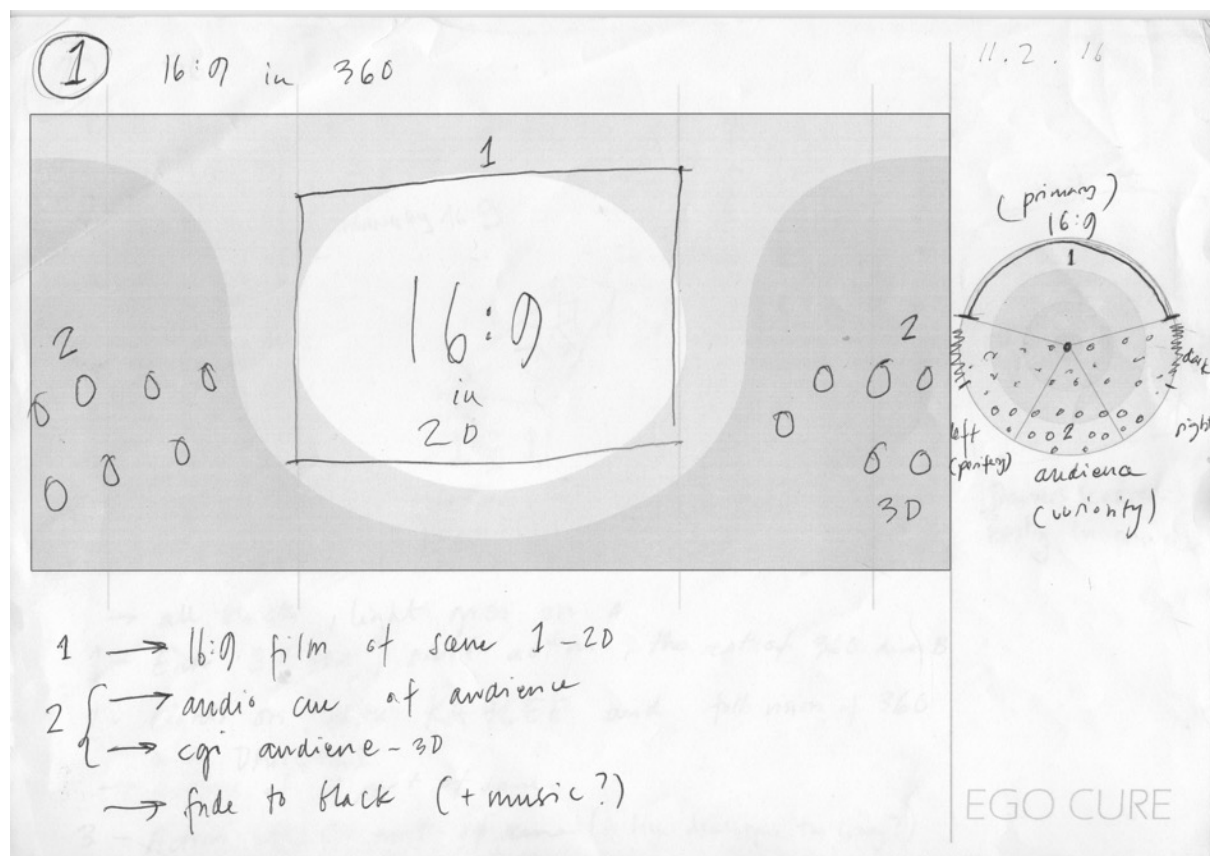 1 16:9 in 360
11.2.16
1
16:9
in
2D
2
2
3D
(primary)
16:9
1
dark
left
right
(perifery)
2
audience
(curiosity)
1 → 16:9 film of scene 1-2D
2 { → audio cue of audience
→ cgi audiene - 3D
→ fade to black (+music?)
EGO CURE